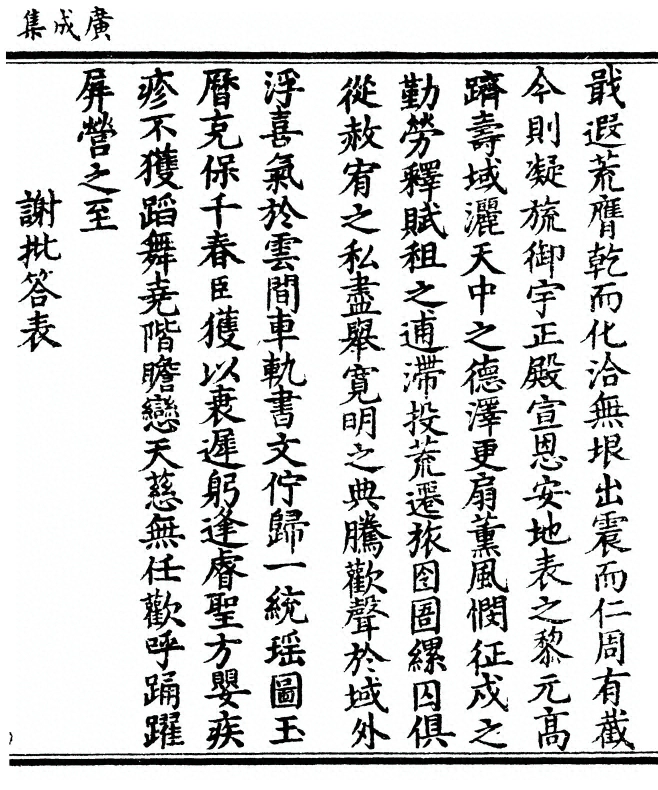 廣成集
戢遐荒膺乾而化洽無垠出震而仁周有截
今則凝旒御宇正殿宣恩安地表之黎元髙
躋壽域灑天中之德澤更扇薫風憫征戍之
勤勞釋賦租之逋滯投荒遷旅囹圄縲囚俱
從赦宥之私盡舉寛明之典騰歡聲於域外
浮喜氣於雲間車軌書文佇歸一統瑶圖玉
曆克保千春臣獲以衰遲躬逢睿聖方嬰疾
疹不獲蹈舞堯階瞻戀天慈無任歡呼踊躍
屏營之至
謝批答表